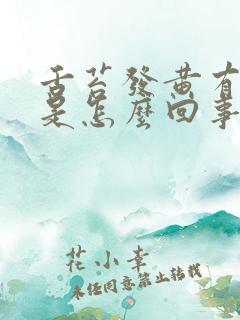 舌苔發黃有
是怎麼回事
花小幸
未经同意禁止转载